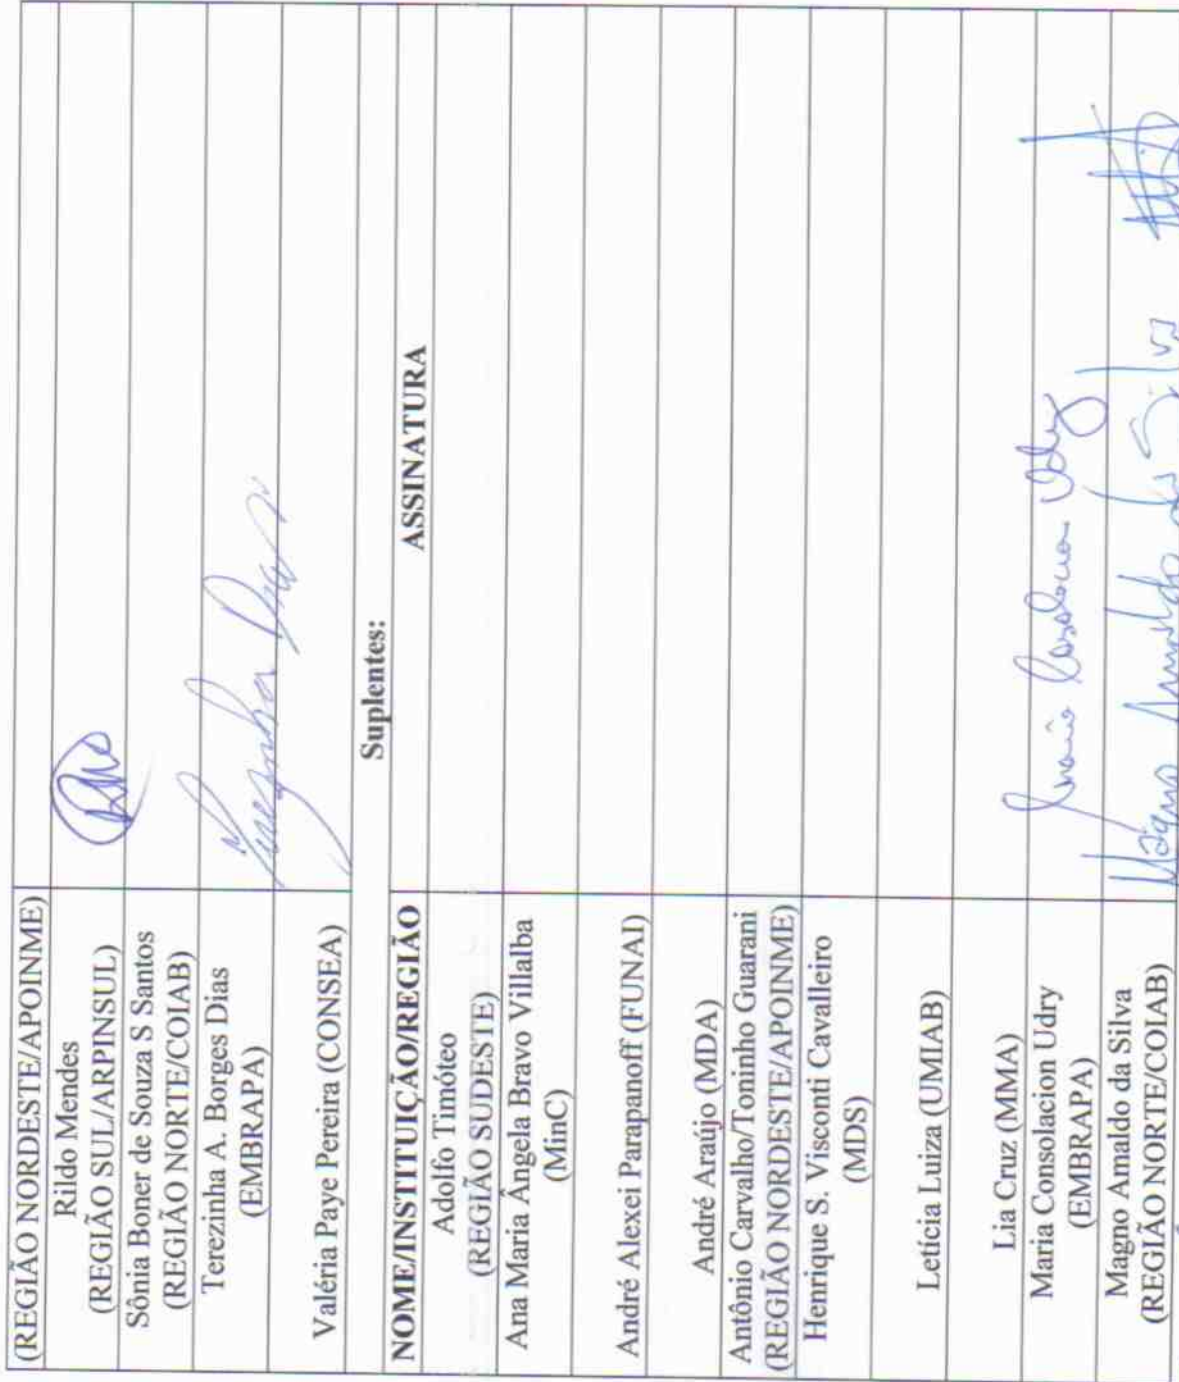 (REGIÃO NORDESTE/APOINME)
Rildo Mendes
(REGIÃO SUL/ARPINSUL)
Sônia Boner de Souza S Santos
(REGIÃO NORTE/COIAB)
Terezinha A. Borges Dias
(EMBRAPA)
Terezinha Dias
Valéria Paye Pereira (CONSEA)
Suplentes:
NOME/INSTITUIÇÃO/REGIÃO ASSINATURA
Adolfo Timóteo
(REGIÃO SUDESTE)
Ana Maria Ângela Bravo Villalba
(MinC)
André Alexei Parapanoff (FUNAI)
André Araújo (MDA)
Antônio Carvalho/Toninho Guarani
(REGIÃO NORDESTE/APOINME)
Henrique S. Visconti Cavalleiro
(MDS)
Letícia Luiza (UMIAB)
Lia Cruz (MMA)
Maria Consolacion Udry
(EMBRAPA)
Maria Consolacion Udry
Magno Amaldo da Silva
(REGIÃO NORTE/COIAB)
Magno Amaldo da Silva